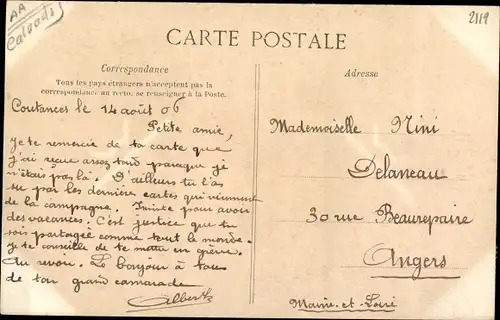 AA
Calvados
2119
CARTE POSTALE
Correspondance
Tous les pays étrangers n'acceptent pas la
correspondance au recto, se renseigner à la Poste.
Coutances le 14 août 06
Petite amie,
je te remercie de ta carte que
j'ai reçue assez tard parce que je
n'étais pas là. D'ailleurs tu l'as
su par les dernières cartes qui viennent
de la campagne. pour avoir
des vacances. C'est justice que tu
sois partagée comme tout le monde.
je te conseille de te mettre en
Au revoir. Le bonjour à tous
de ton grand camarade
Albert
Adresse
Mademoiselle Nini
Delaneau
30 rue Beaurepaire
Angers
Maine-et-Loire